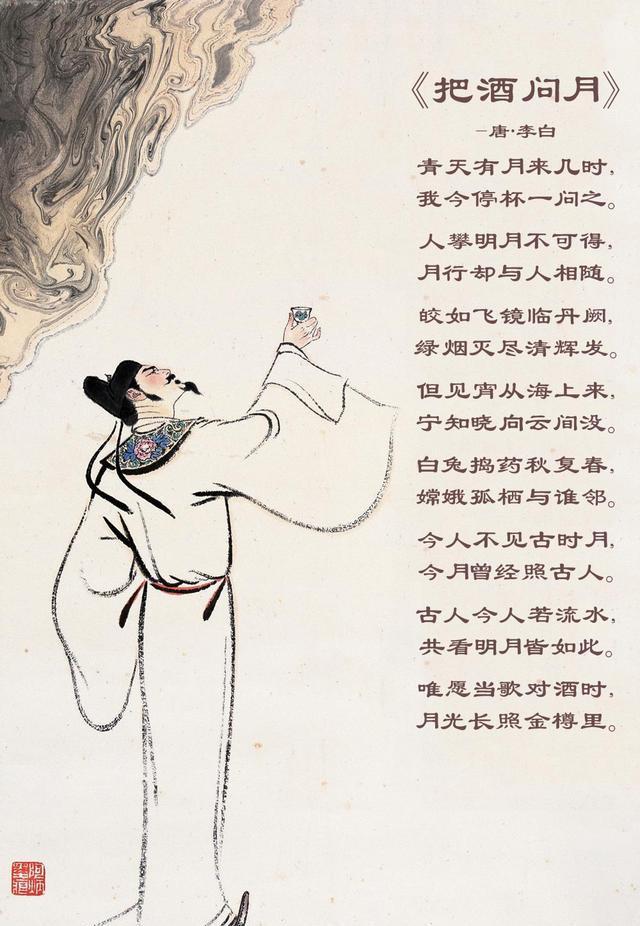 《把酒问月》
—唐·李白
青天有月来几时，
我今停杯一问之。
人攀明月不可得，
月行却与人相随。
皎如飞镜临丹阙，
绿烟灭尽清辉发。
但见宵从海上来，
宁知晓向云间没。
白兔捣药秋复春，
嫦娥孤栖与谁邻。
今人不见古时月，
今月曾经照古人。
古人今人若流水，
共看明月皆如此。
唯愿当歌对酒时，
月光长照金樽里。